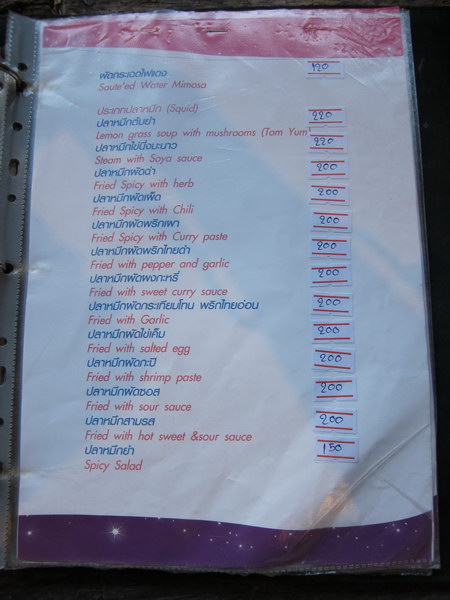 ผัดกระเฉดไฟแดง 120
Saute'ed Water Mimosa
ประเภทปลาหมึก (Squid)
ปลาหมึกต้มยำ 220
Lemon grass soup with mushrooms (Tom Yum)
ปลาหมึกไข่นึ่งมะนาว 220
Steam with Soya sauce
ปลาหมึกผัดฉ่า 200
Fried Spicy with herb
ปลาหมึกผัดเผ็ด 200
Fried Spicy with Chili
ปลาหมึกผัดพริกเผา 200
Fried Spicy with Curry paste
ปลาหมึกผัดพริกไทยดำ 200
Fried with pepper and garlic
ปลาหมึกผัดผงกะหรี่ 200
Fried with sweet curry sauce
ปลาหมึกผัดกระเทียมโทน พริกไทยอ่อน 200
Fried with Garlic
ปลาหมึกผัดไข่เค็ม 200
Fried with salted egg
ปลาหมึกผัดกะปิ 200
Fried with shrimp paste
ปลาหมึกผัดซอส 200
Fried with sour sauce
ปลาหมึกสามรส 200
Fried with hot sweet &sour sauce
ปลาหมึกยำ 150
Spicy Salad